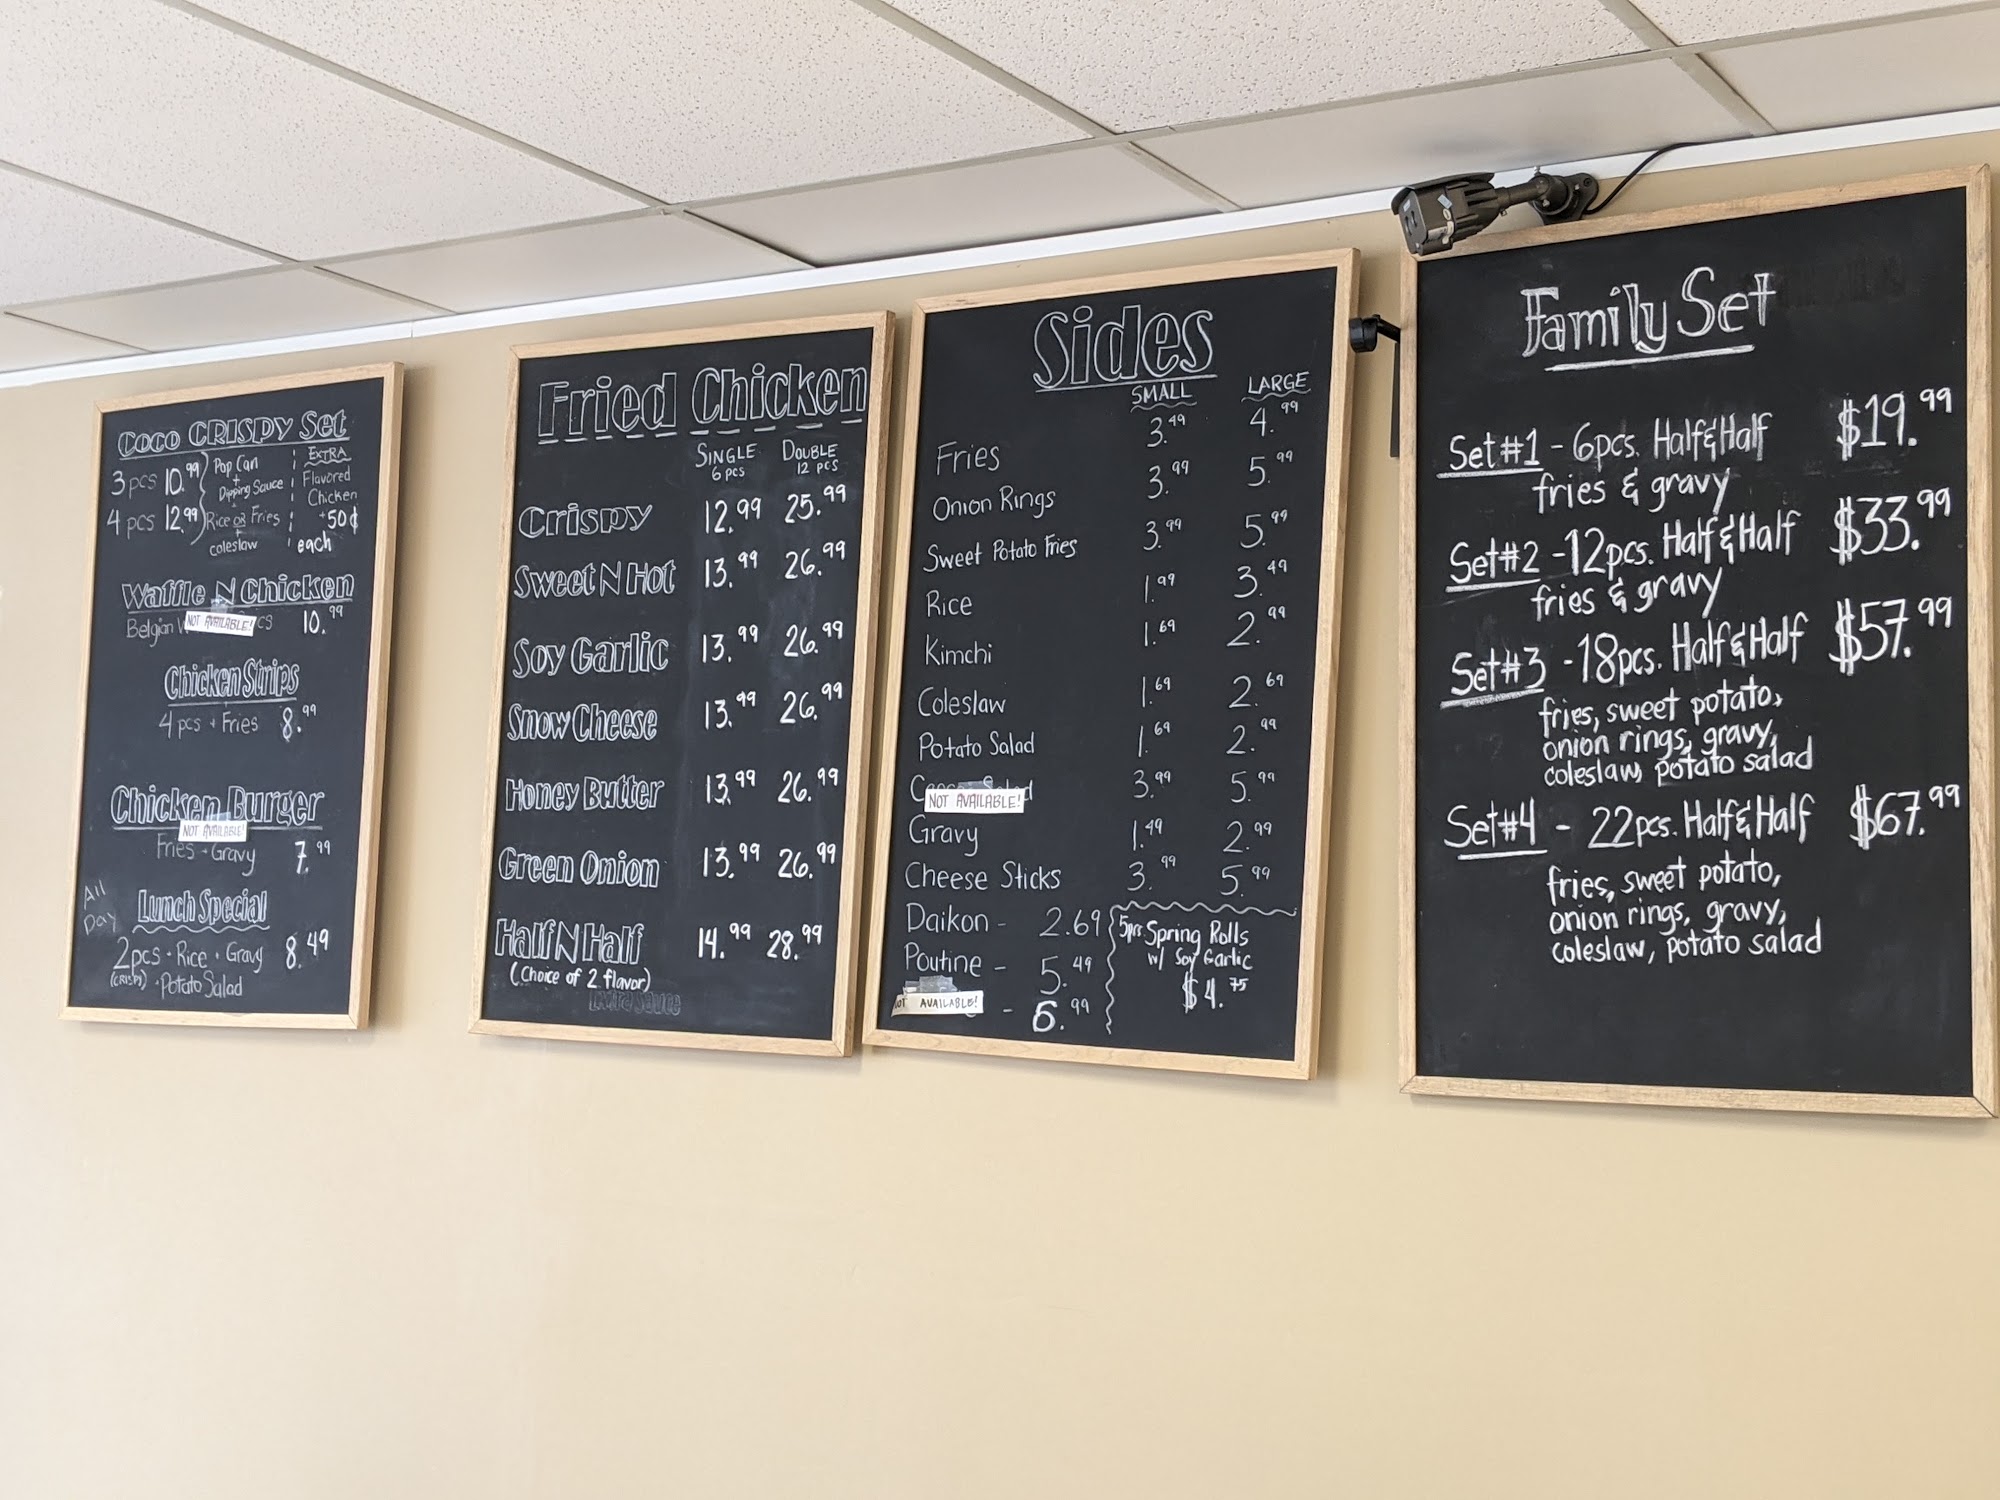 Coco CRISPY Set
3 pcs 10.99
4 pcs 12.99
Pop Can
+
Dipping Sauce
+
Rice OR Fries
+
coleslaw
EXTRA
Flavored
Chicken
+50¢
each
Waffle N Chicken
Belgian NOT AVAILABLE! 10.99
Chicken Strips
4 pcs + Fries 8.99
Chicken Burger
NOT AVAILABLE!
Fries + Gravy 7.99
All
Day
Lunch Special
2pcs + Rice + Gravy 8.49
(CRISPY) + Potato Salad
Fried Chicken
SINGLE DOUBLE
6 pcs 12 pcs
Crispy 12.99 25.99
Sweet N Hot 13.99 26.99
Soy Garlic 13.99 26.99
Snow Cheese 13.99 26.99
Honey Butter 13.99 26.99
Green Onion 13.99 26.99
Half N Half 14.99 28.99
(Choice of 2 flavor)
Extra Sauce
Sides
SMALL LARGE
Fries 3.49 4.99
Onion Rings 3.99 5.99
Sweet Potato Fries 3.99 5.99
Rice 1.99 3.49
Kimchi 1.69 2.99
Coleslaw 1.69 2.69
Potato Salad 1.69 2.99
NOT AVAILABLE! 3.99 5.99
Gravy 1.49 2.99
Cheese Sticks 3.99 5.99
Daikon - 2.69
Poutine - 5.49
NOT AVAILABLE! - 6.99
5pcs Spring Rolls
w/ Soy Garlic
$4.75
Family Set
Set#1 - 6pcs. Half&Half $19.99
fries & gravy
Set#2 - 12pcs. Half&Half $33.99
fries & gravy
Set#3 - 18pcs. Half&Half $57.99
fries, sweet potato,
onion rings, gravy,
coleslaw, potato salad
Set#4 - 22pcs. Half&Half $67.99
fries, sweet potato,
onion rings, gravy,
coleslaw, potato salad